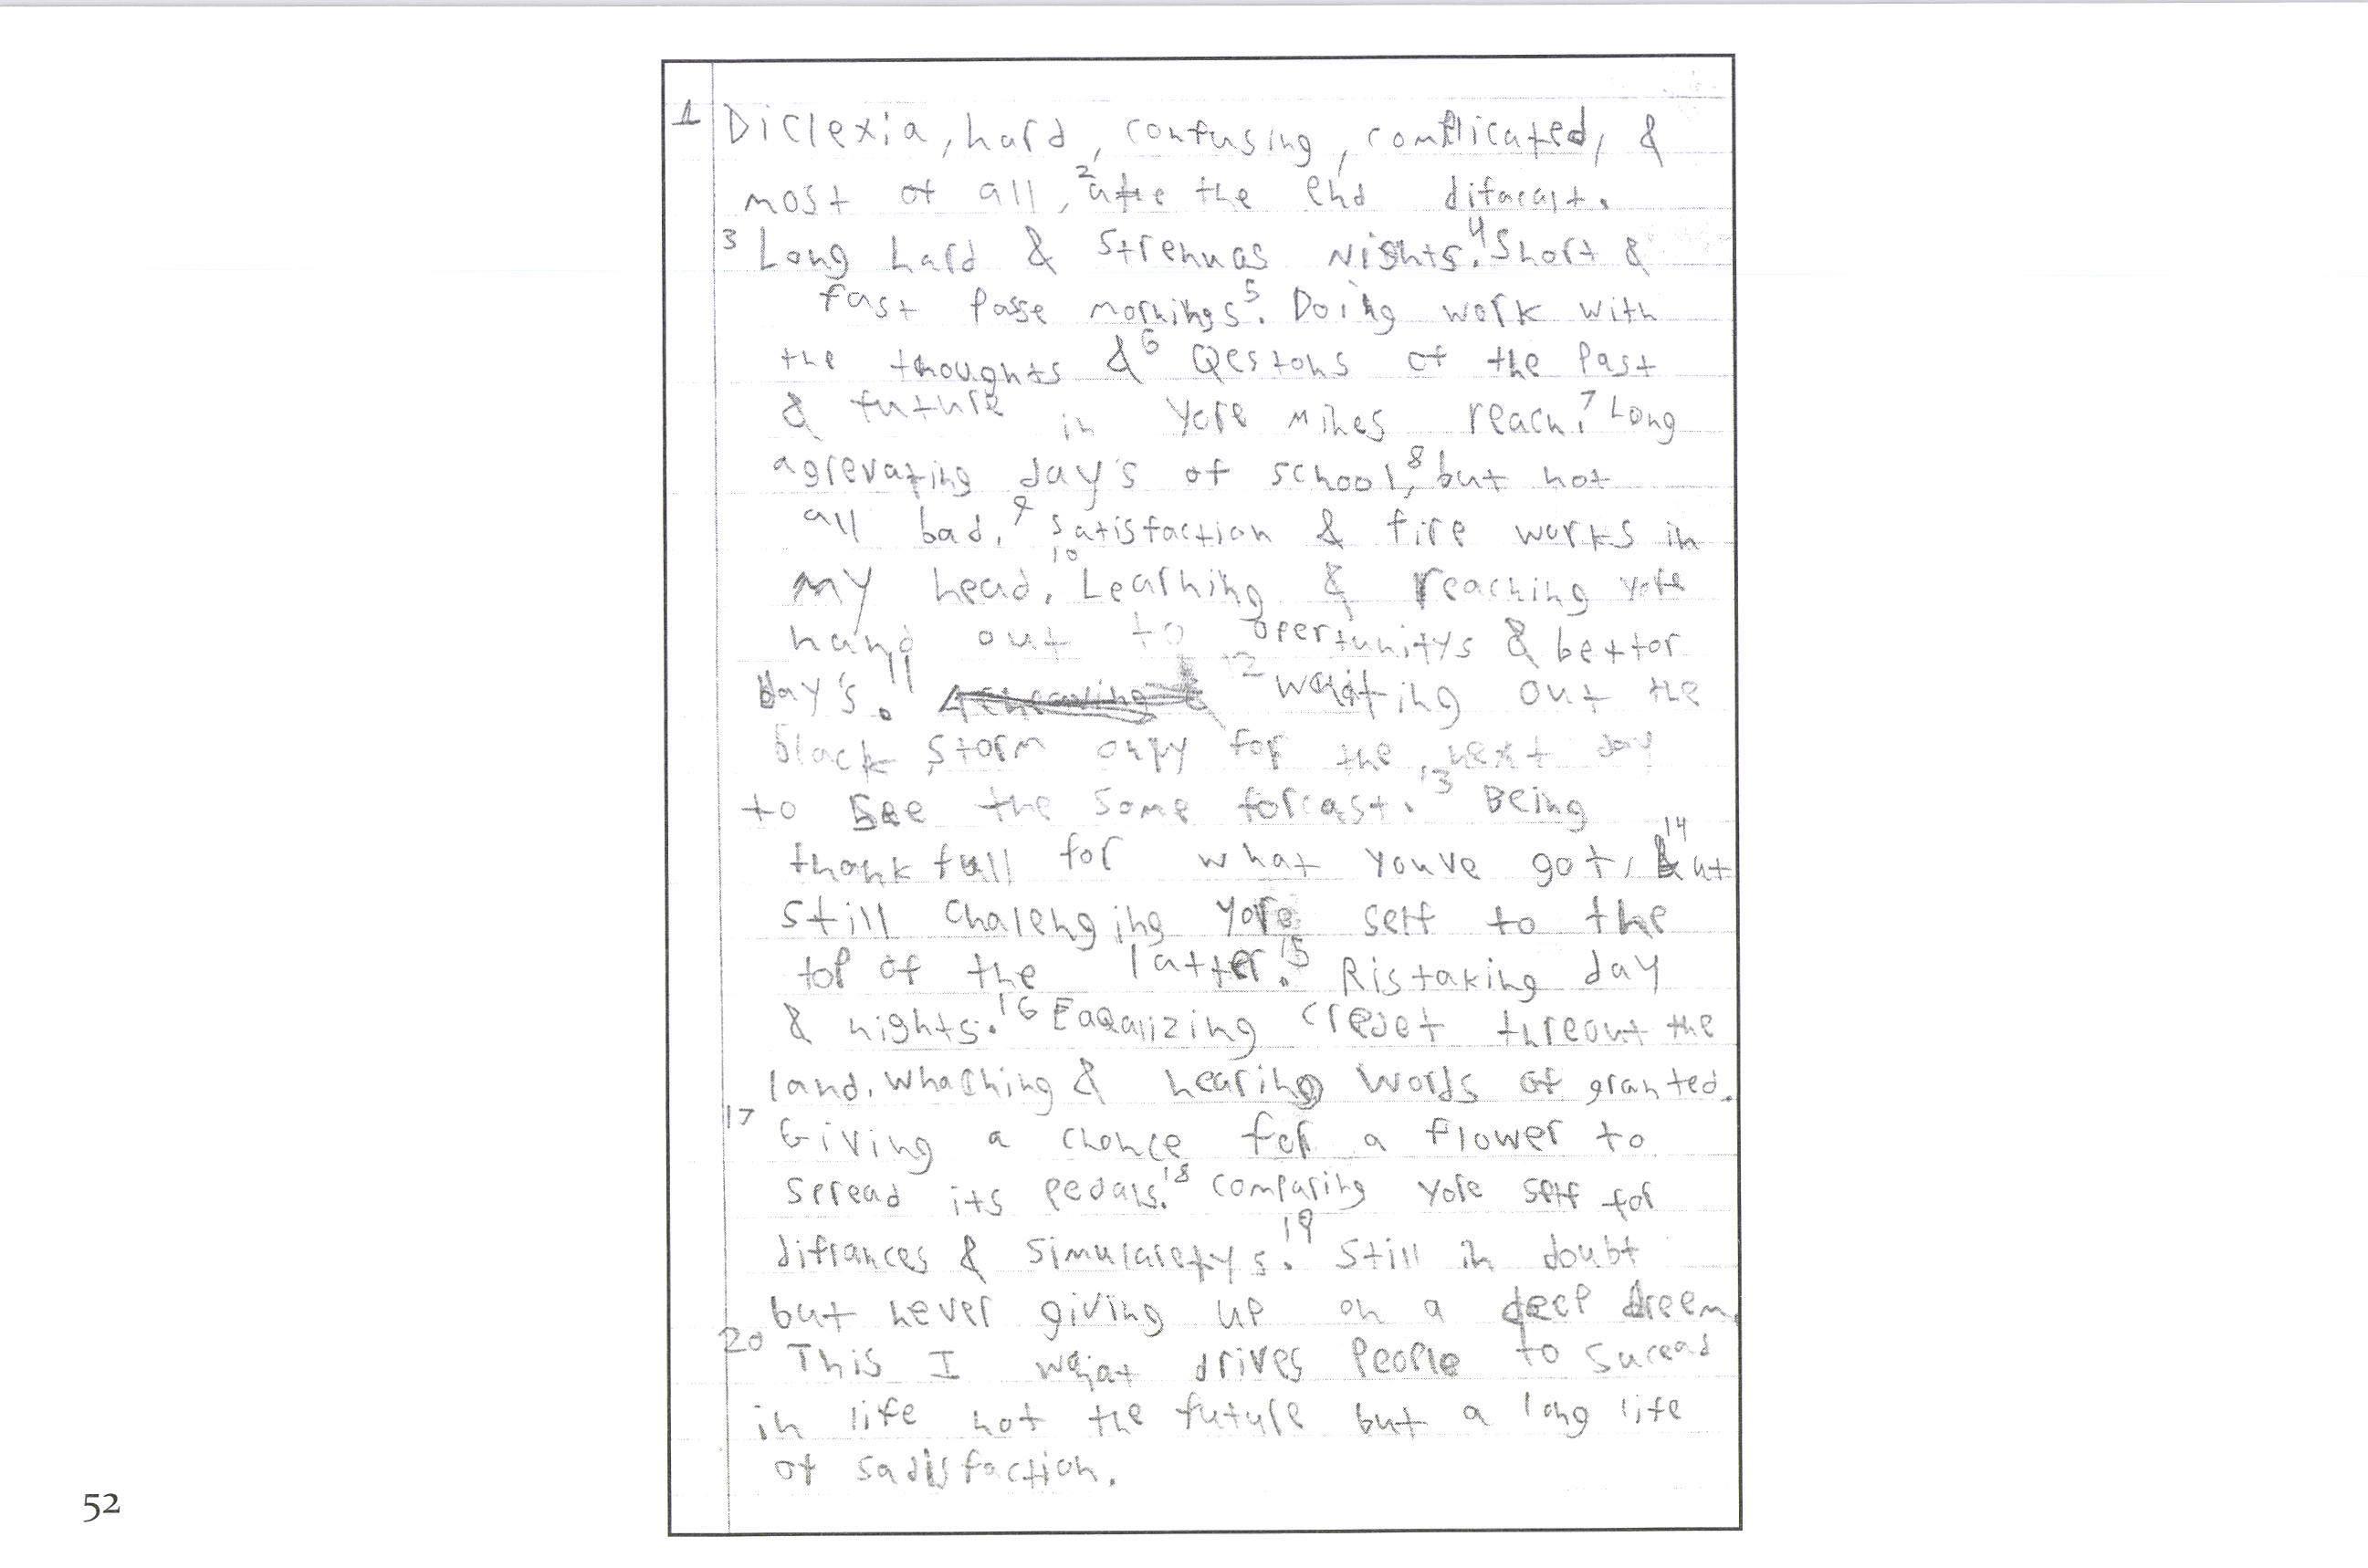 1 Diclexia, hard, confusing, complicated, &
most of all, 2 atte the end difacalt.
3 Long hard & strenuas Nights. 4 Short &
fast passe mornings 5. Doing work with
the thoughts & 6 Qestons of the Past
& future in yore mines reach. 7 Long
agrevating day's of school, 8 but not
all bad. 9 satisfaction & fire works in
my head. 10 Learning & reaching yore
hand out to opertunitys & bettor
day's. 11 12 waiting out the
black storm onpy for the next day
to see the some forcast. 13 Being
thank full for what youve got, 14 but
still chalenging yore self to the
top of the latter. 15 Ristaking day
& nights. 16 Eaqalizing credet threout the
land. whaching & hearing words of granted.
17 Giving a chonce for a flower to
spread its pedals. 18 comparing yore self for
difrances & simularetys. 19 Still in doubt
but never giving up on a deep dreem.
20 This I what drives people to sucead
in life not the future but a long life
of sadisfaction.
52